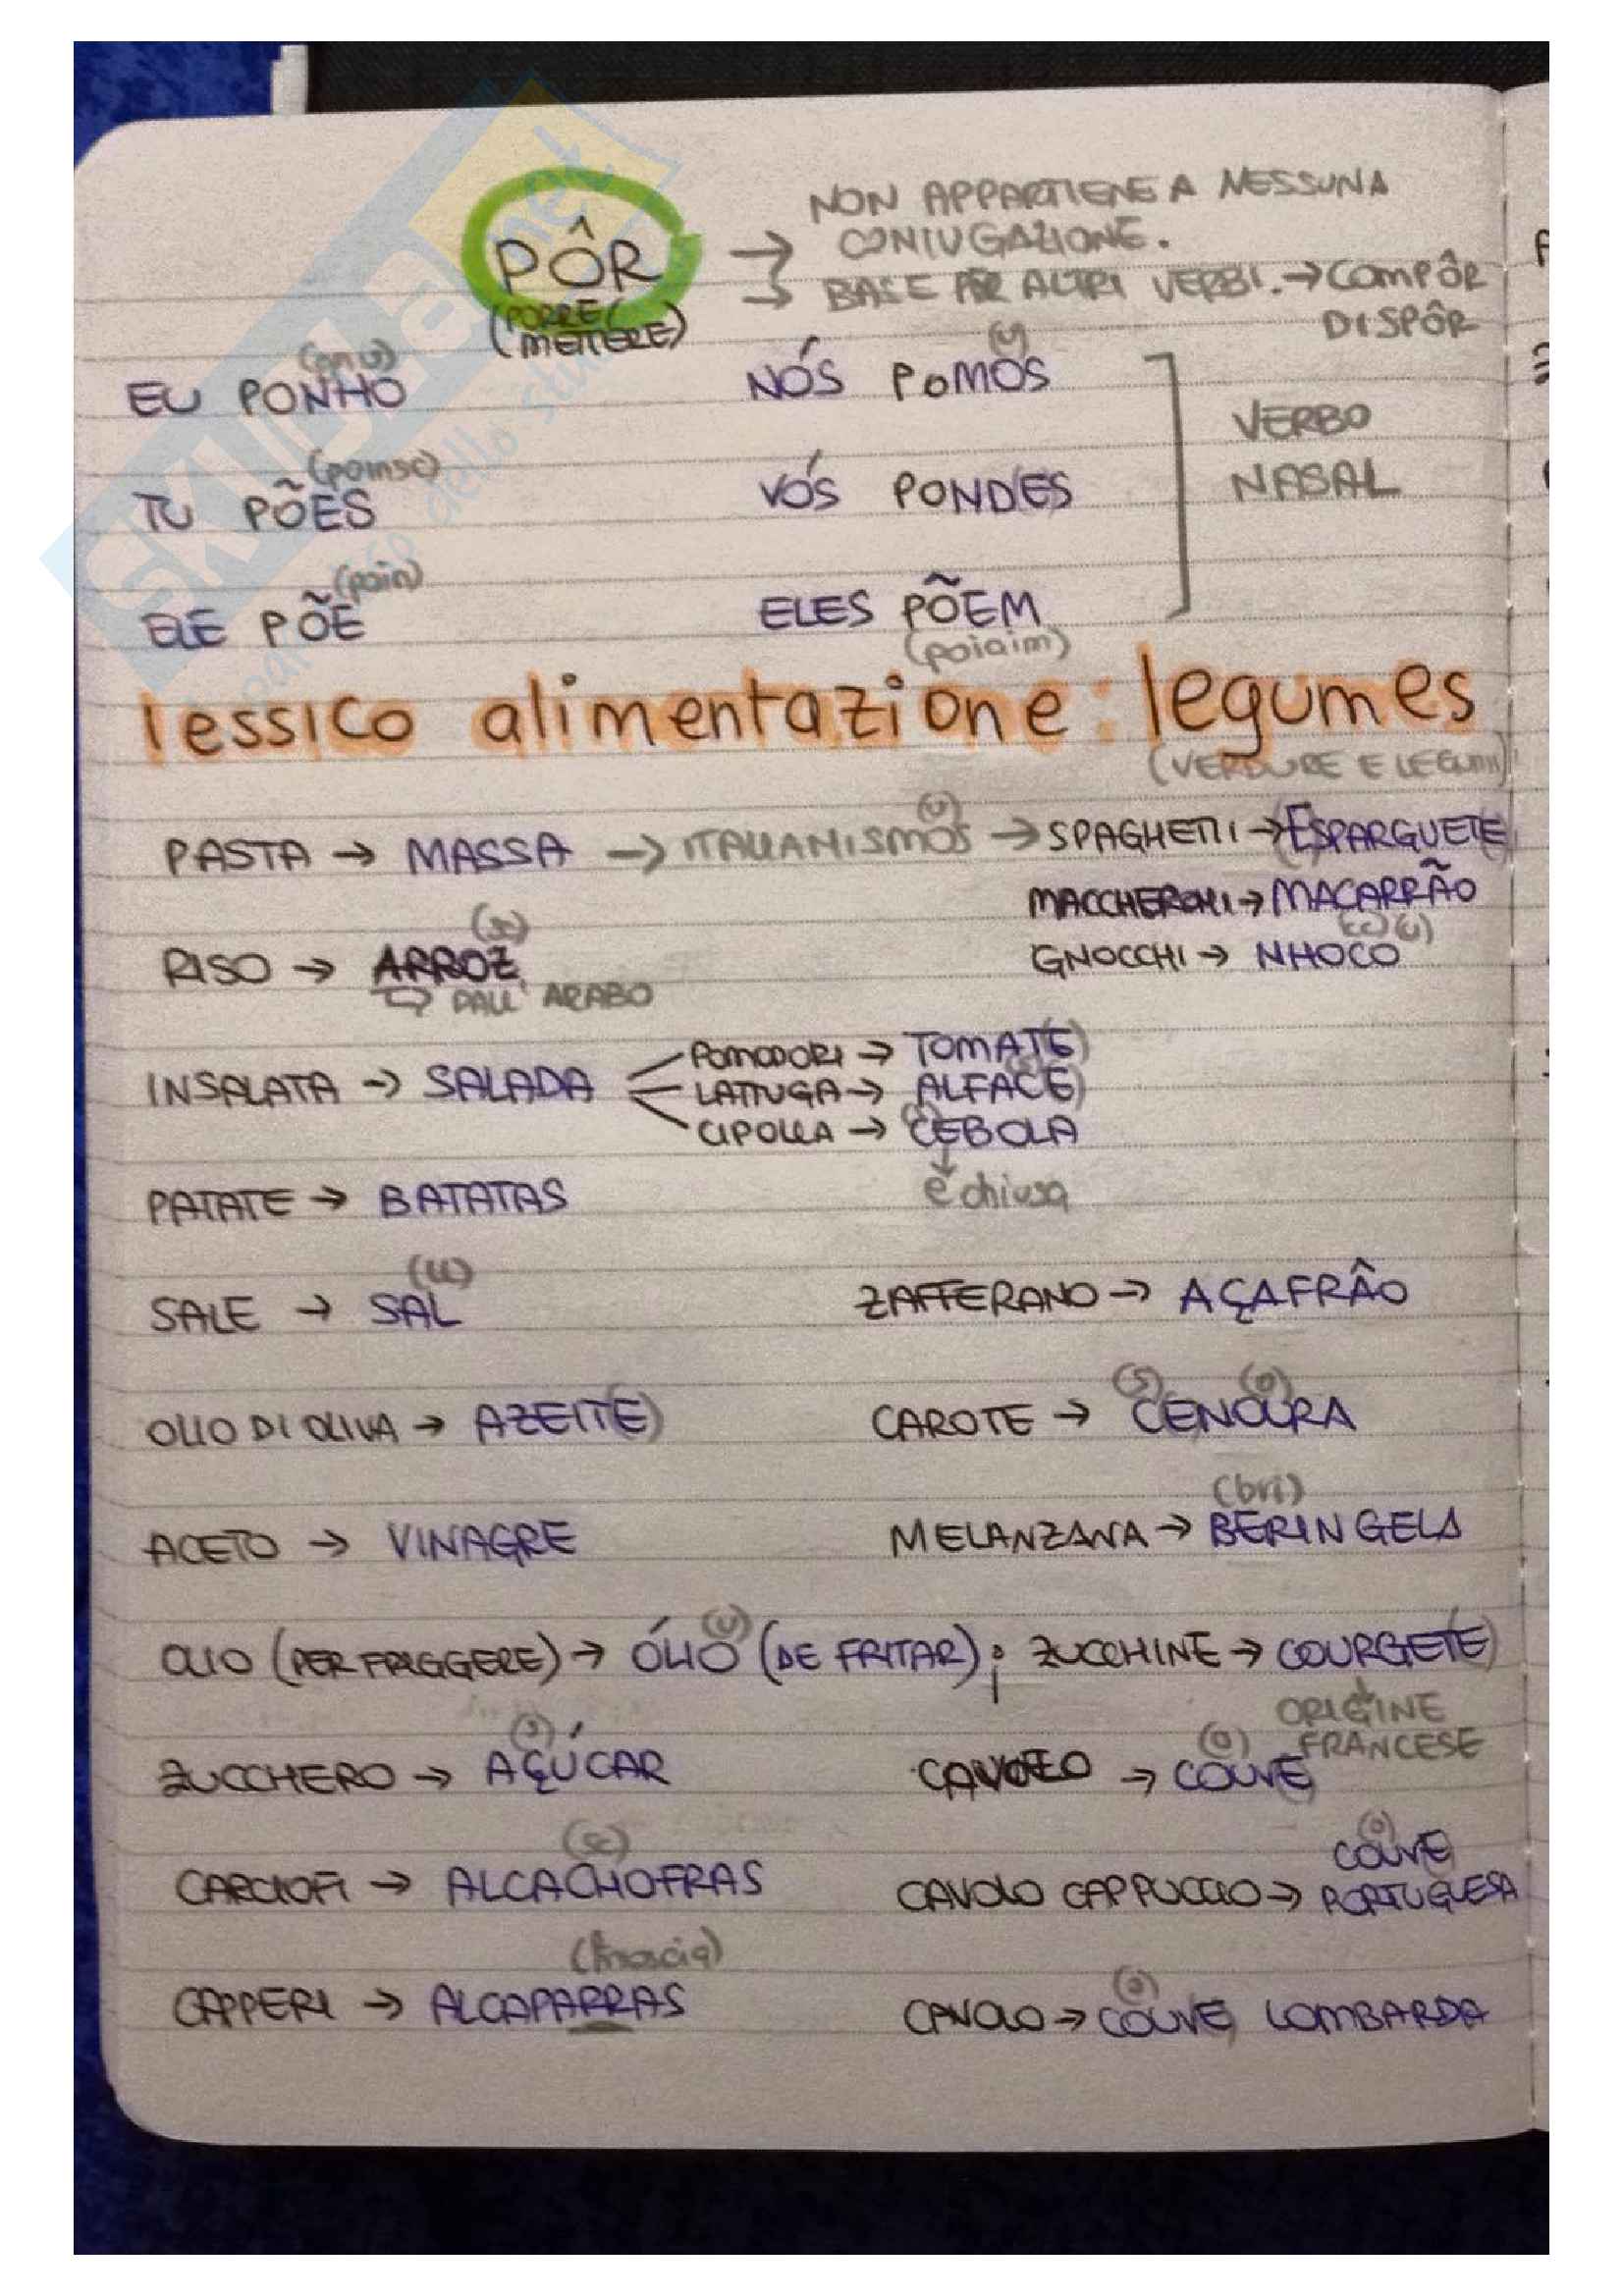 NON APPARTIENE A NESSUNA
PÔR → CONIUGAZIONE.
→ BASE PER ALTRI VERBI. → COMPÔR
(PORRE/ DISPÔR
METTERE)
(gnu) (u)
EU PONHO NÓS POMOS
(poinsc) VERBO
TU PÕES VÓS PONDES NASAL
(poin)
ELE PÕE ELES PÕEM
(poiaim)
lessico alimentazione: legumes
(VERDURE E LEGUMI)
(u)
PASTA → MASSA → ITALIANISMOS → SPAGHETTI → ESPARGUETE
MACCHERONI → MACARRÃO
(sc) (c) (u)
RISO → ARROZ GNOCCHI → NHOCO
DALL' ARABO
POMODORI → TOMATE)
INSALATA → SALADA LATTUGA → ALFACE)
CIPOLLA → CEBOLA
PATATE → BATATAS e chiusa
(LL)
SALE → SAL ZAFFERANO → AÇAFRÂO
(S) (O)
OLIO DI OLIVA → AZEITE) CAROTE → CENOURA
(bri)
ACETO → VINAGRE MELANZANA → BERINGELA
(u)
OLIO (PER FRIGGERE) → ÓLIO (DE FRITAR); ZUCCHINE → COURGETE)
ORIGINE
(S) (O) FRANCESE
ZUCCHERO → AÇÚCAR CAVOLO → COUVE
(sc) (o)
COUVE
CARCIOFI → ALCACHOFRAS CAVOLO CAPPUCCIO → PORTUGUESA
(o)
CAPPERI → ALCAPARRAS CAVOLO → COUVE LOMBARDA
SKUOLA.net